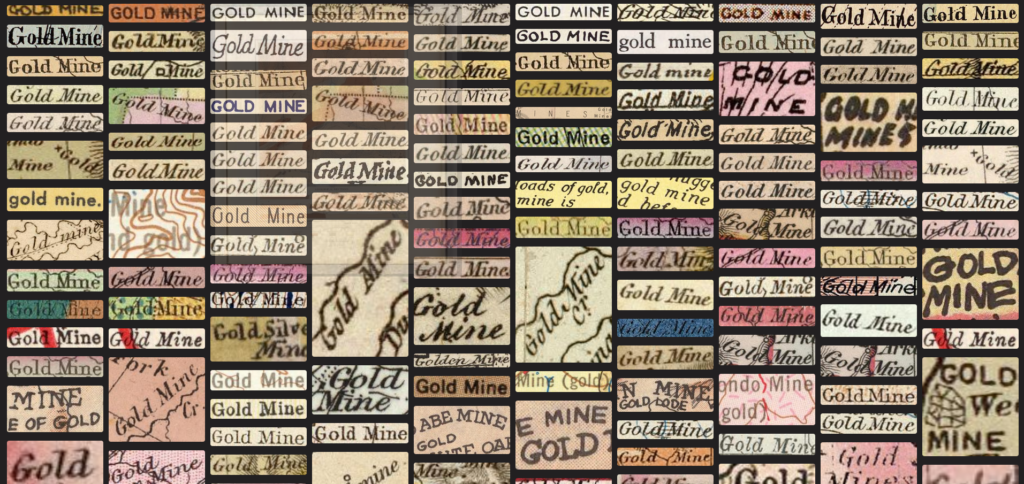 GOLD MINE
Gold Mine
Gold Mine
Gold Mine
Gold Mine
Gold
Mine
gold mine.
Gold mine
Gold Mine
Gold Mine
Gold Mine
Gold Mine
MINE
E OF GOLD
Gold
GOLD MINE
Gold Mine
Gold Mine
Gold Mine
Gold Mine
Gold Mine
Mine
nd gold)
Gold Mine
Gold Mine
Gold Mine
York
Gold Mine
Cr.
Gold Mine
GOLD MINE
Gold Mine
Gold Mine
GOLD MINE
Gold Mine
Gold Mine
Gold Mine
Gold Mine
Gold, Mine
Gold Mine
Gold Mine
Gold Silve
Mine
Gold Mine
Gold Mine
Gold Mine
Gold Mine
Gold Mine
Gold Mine
Gold Mine
Gold Mine
Gold Mine
Gold Mine
Gold Mine
Gold Mine
Du
Gold
Mine
Gold Mine
mine
Gold Mine
Gold Mine
Gold Mine
Gold Mine
Gold Mine
Gold Mine
GOLD MINE
Gold Mine
Gold Mine
Gold Mine
Gold
Mine
Golden Mine
Gold Mine
ABE MINE
GOLD
Mine
GOLD MINE
GOLD MINE
Gold Mine
GOLD MINE
INES
Gold Mine
Gold Mine
oads of gold,
mine is
Gold Mine
Gold Mine
Cr.
Mine (gold)
E MINE
GOLD
Gold Mine
gold mine
Gold mine
Gold Mine
Gold Mine
Gold Mine
nugge
gold mine
d bef
Gold Mine
Gold Mine
Gold Mine
Gold Mine
Gold Mine
N MINE
GOLD LODE
Gold Mine
Gold Mine
GOLD MINE
Gold Mine
GOLD
MINE
Gold Mine
Gold Mine
Gold Mine
Arka
Gold Mine
Gold Mine
Gold, Mine
Gold Mine
Arka
Gold Mine
ondo Mine
gold)
Gold Mine
Gold
Gold Mine
Gold Mine
Gold Mine
GOLD M
MINES
Gold Mine
Gold Mine
Gold Mine
Gold Mine
Gold Mine
Gold Mine
Ark
Gold Mine
Gold Mine
Gold Mine
Gold
Mines
Gold Mine
Gold Mine
Gold Mine
Gold Mine
Gold Mine
Mine
Gold
Gold Mine
Gold Mine
GOLD
MINE
Gold Mine
GOLD
We
MINE